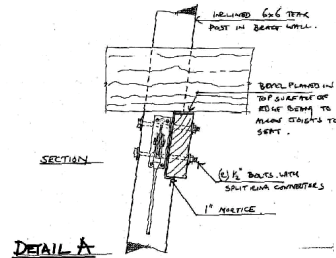 INCLINED 6x6 TEAK
POST IN BRACE WALL.
BEVEL PLANED IN
TOP SURFACE OF
EDGE BEAM TO
ALLOW JOISTS TO
SEAT.
SECTION
(2) ½" BOLTS WITH
SPLIT RING CONNECTORS
1" MORTICE
DETAIL A